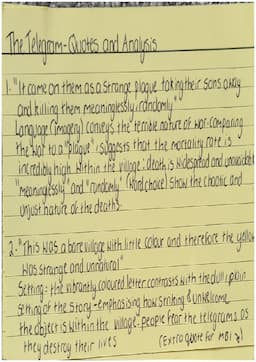 The Telegram - Quotes and Analysis
1. "It came on them as a strange plague taking their sons away
and killing them meaninglessly, randomly"
Language (Imagery) conveys the terrible nature of war - comparing
the war to a "plague" suggests that the mortality rate is
incredibly high within the village: death is widespread and unavoidable
"meaninglessly" and "randomly" (Word choice) show the chaotic and
unjust nature of the deaths.
2. "This was a bare village with little colour and therefore the yellow
was strange and unnatural"
Setting: the vibrantly coloured letter contrasts with the dull, plain
setting of the story - emphasising how striking & unwelcome
the object is within the village: people fear the telegrams as
they destroy their lives (Extra quote for